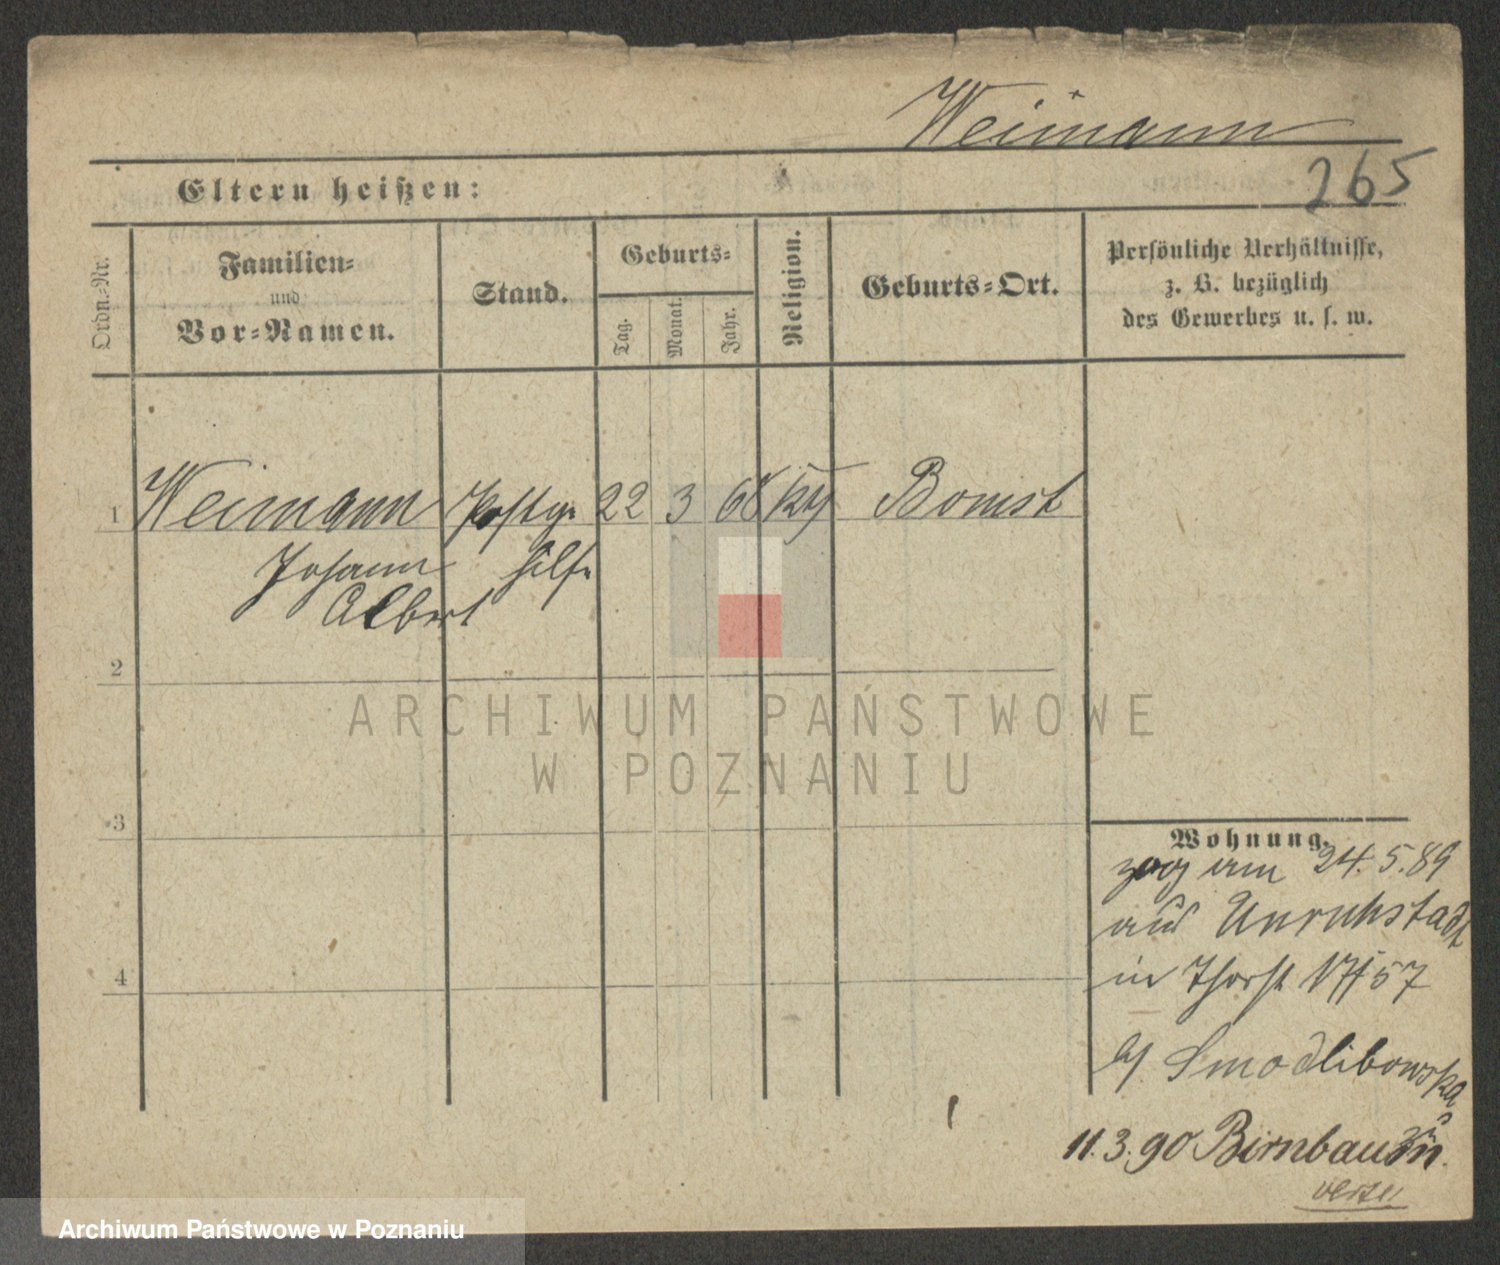 Weimann
265
Eltern heißen:
Ordn.-Nr.
Familien-
und
Vor-Namen.
Stand.
Geburts-
Tag.
Monat.
Jahr.
Religion.
Geburts-Ort.
Persönliche Verhältnisse,
z. B. bezüglich
des Gewerbes u. s. w.
1 Weimann Postg. 22 3 68 Bomst
Johann hilf.
Albert
2
3
4
Wohnung.
zog am 24.5.89
aus Unruhstadt
in Thorst 57
b/ Smodlibowska
11.3.90 Birnbaum
ARCHIWUM PAŃSTWOWE
W POZNANIU
Archiwum Państwowe w Poznaniu